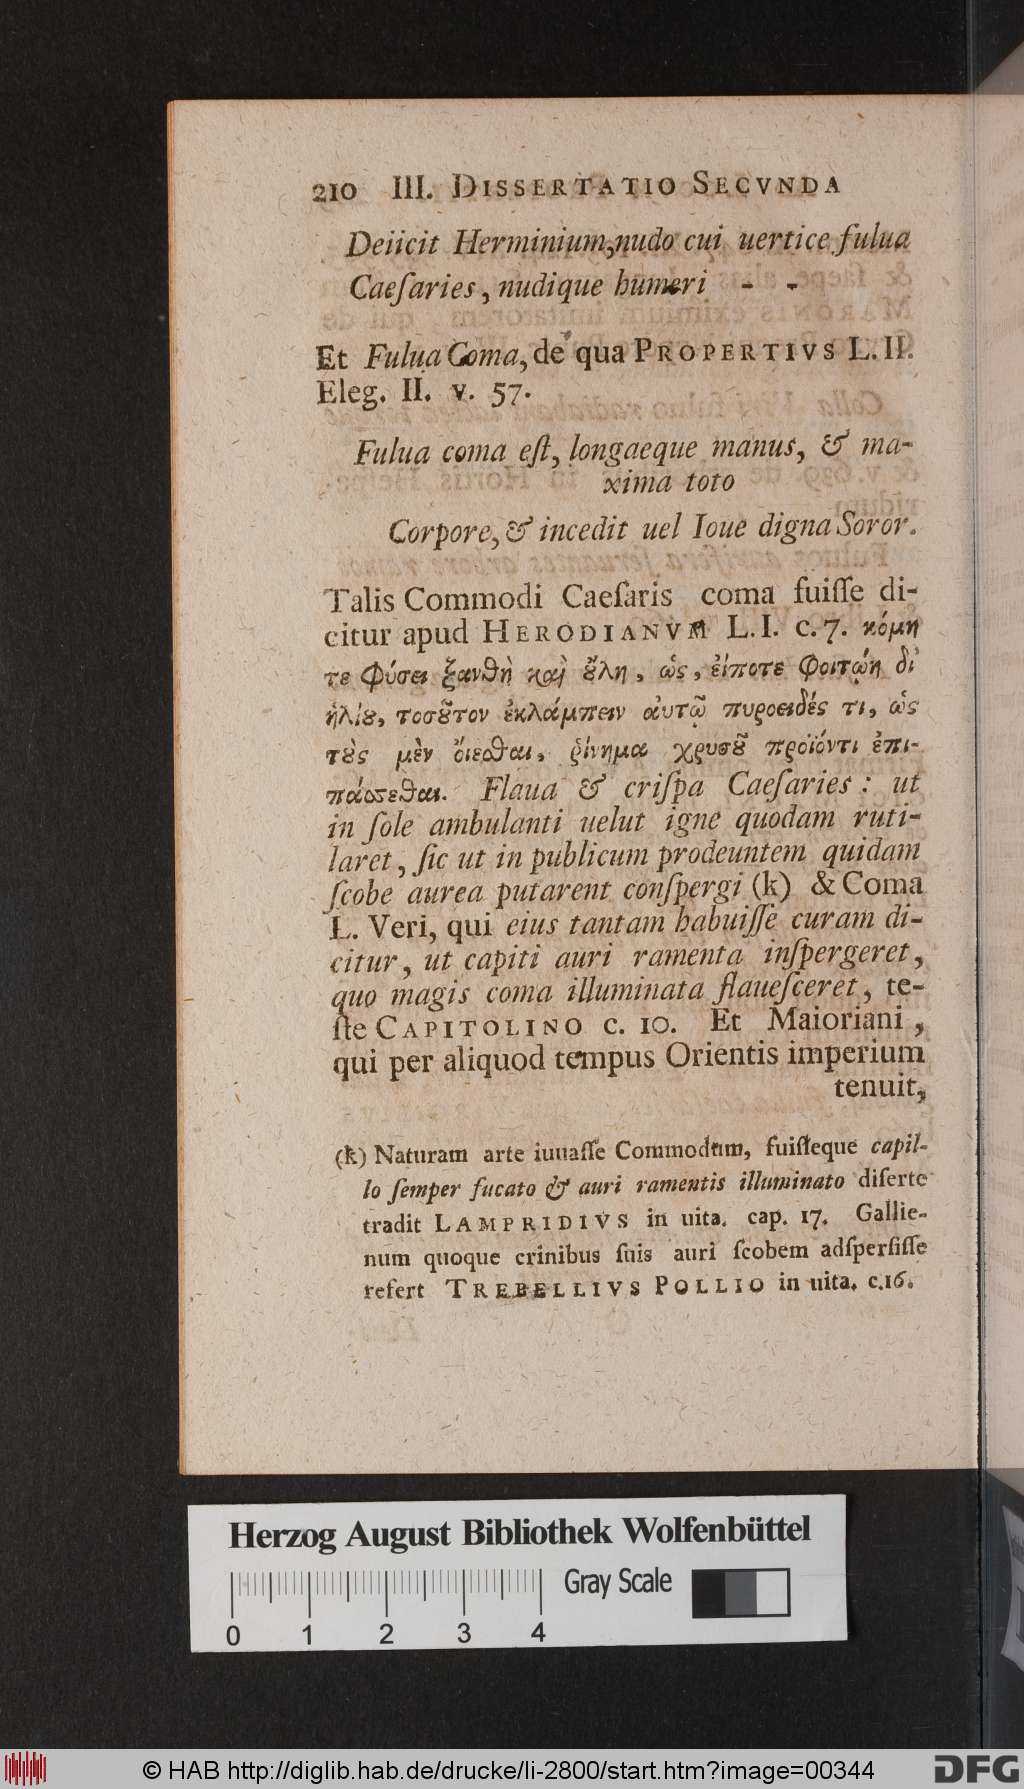 210 III. DISSERTATIO SECVNDA
Deiicit Herminium, nudo cui uertice fulua
Caeſaries, nudique humeri - -
Et Fulua Coma, de qua PROPERTIVS L. II.
Eleg. II. v. 57.
Fulua coma eſt, longaeque manus, & ma-
xima toto
Corpore, & incedit uel Ioue digna Soror.
Talis Commodi Caeſaris coma fuiſſe di-
citur apud HERODIANVM L. I. c. 7. κόμη
τε φύσει ξανθὴ καὶ ȣ̓́λη, ὡς, ἐίποτε φοιτῴη δἰ
ἡλίȣ, τοσȣ͂τον ἐκλάμπειν ἀυτῷ πυροειδές τι, ὡς
τȣ̀ς μὲν ὄιεσθαι, ῥίνημα χρυσȣ͂ προϊόντι ἐπι-
πάσσεθαι. Flaua & criſpa Caeſaries: ut
in ſole ambulanti uelut igne quodam ruti-
laret, ſic ut in publicum prodeuntem quidam
ſcobe aurea putarent conſpergi (k) & Coma
L. Veri, qui eius tantam habuiſſe curam di-
citur, ut capiti auri ramenta inſpergeret,
quo magis coma illuminata flaueſceret, te-
ſte CAPITOLINO c. 10. Et Maioriani,
qui per aliquod tempus Orientis imperium
tenuit,
(k) Naturam arte iuuaſſe Commodum, fuiſſeque capil-
lo ſemper fucato & auri ramentis illuminato diſerte
tradit LAMPRIDIVS in uita. cap. 17. Gallie-
num quoque crinibus ſuis auri ſcobem adſperſiſſe
refert TREBELLIVS POLLIO in uita. c. 16.
Herzog August Bibliothek Wolfenbüttel
Gray Scale
0 1 2 3 4
© HAB http://diglib.hab.de/drucke/li-2800/start.htm?image=00344
DFG